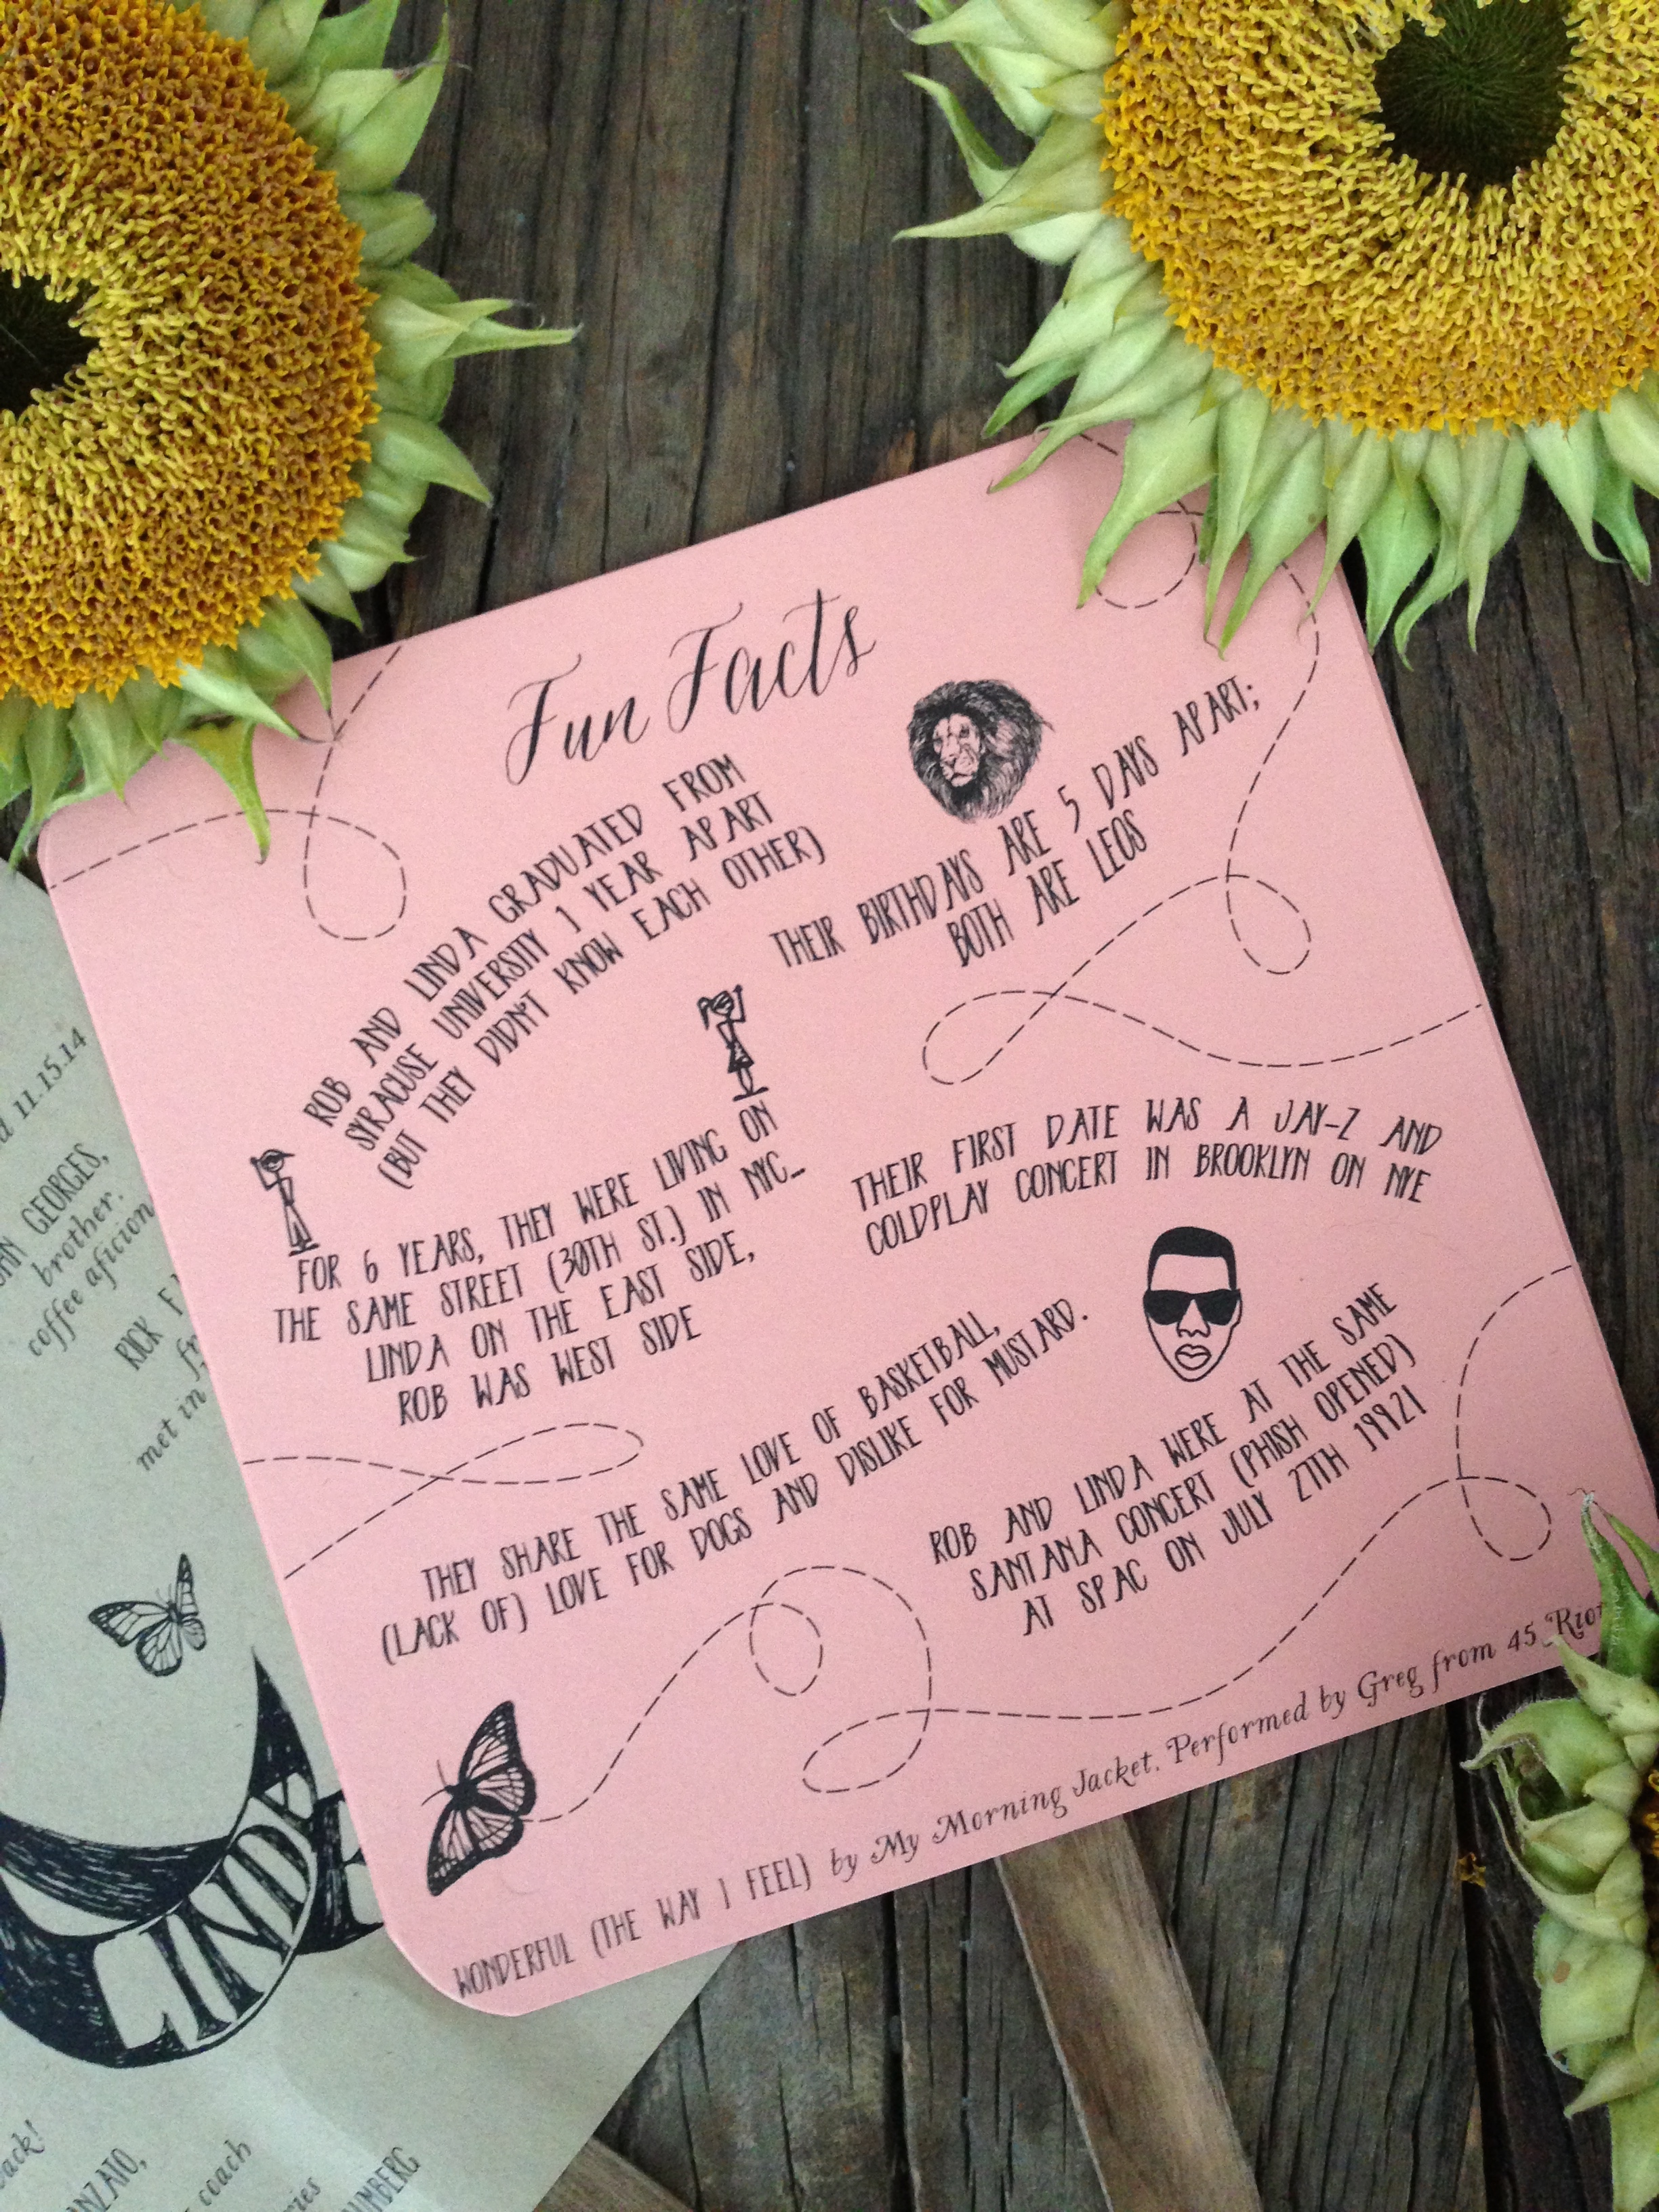 Fun Facts
ROB AND LINDA GRADUATED FROM
SYRACUSE UNIVERSITY 1 YEAR APART
(BUT THEY DIDN'T KNOW EACH OTHER)
THEIR BIRTHDAYS ARE 5 DAYS APART;
BOTH ARE LEOS
FOR 6 YEARS, THEY WERE LIVING ON
THE SAME STREET (30TH ST.) IN NYC...
LINDA ON THE EAST SIDE,
ROB WAS WEST SIDE
THEIR FIRST DATE WAS A JAY-Z AND
COLDPLAY CONCERT IN BROOKLYN ON NYE
THEY SHARE THE SAME LOVE OF BASKETBALL,
(LACK OF) LOVE FOR DOGS AND DISLIKE FOR MUSTARD.
ROB AND LINDA WERE AT THE SAME
SANTANA CONCERT (PHISH OPENED)
AT SPAC ON JULY 27TH 1992!
WONDERFUL (THE WAY I FEEL) by My Morning Jacket. Performed by Greg from 45
11.15.14
GEORGES,
brother.
coffee
RICK
met in
LINDA
coach